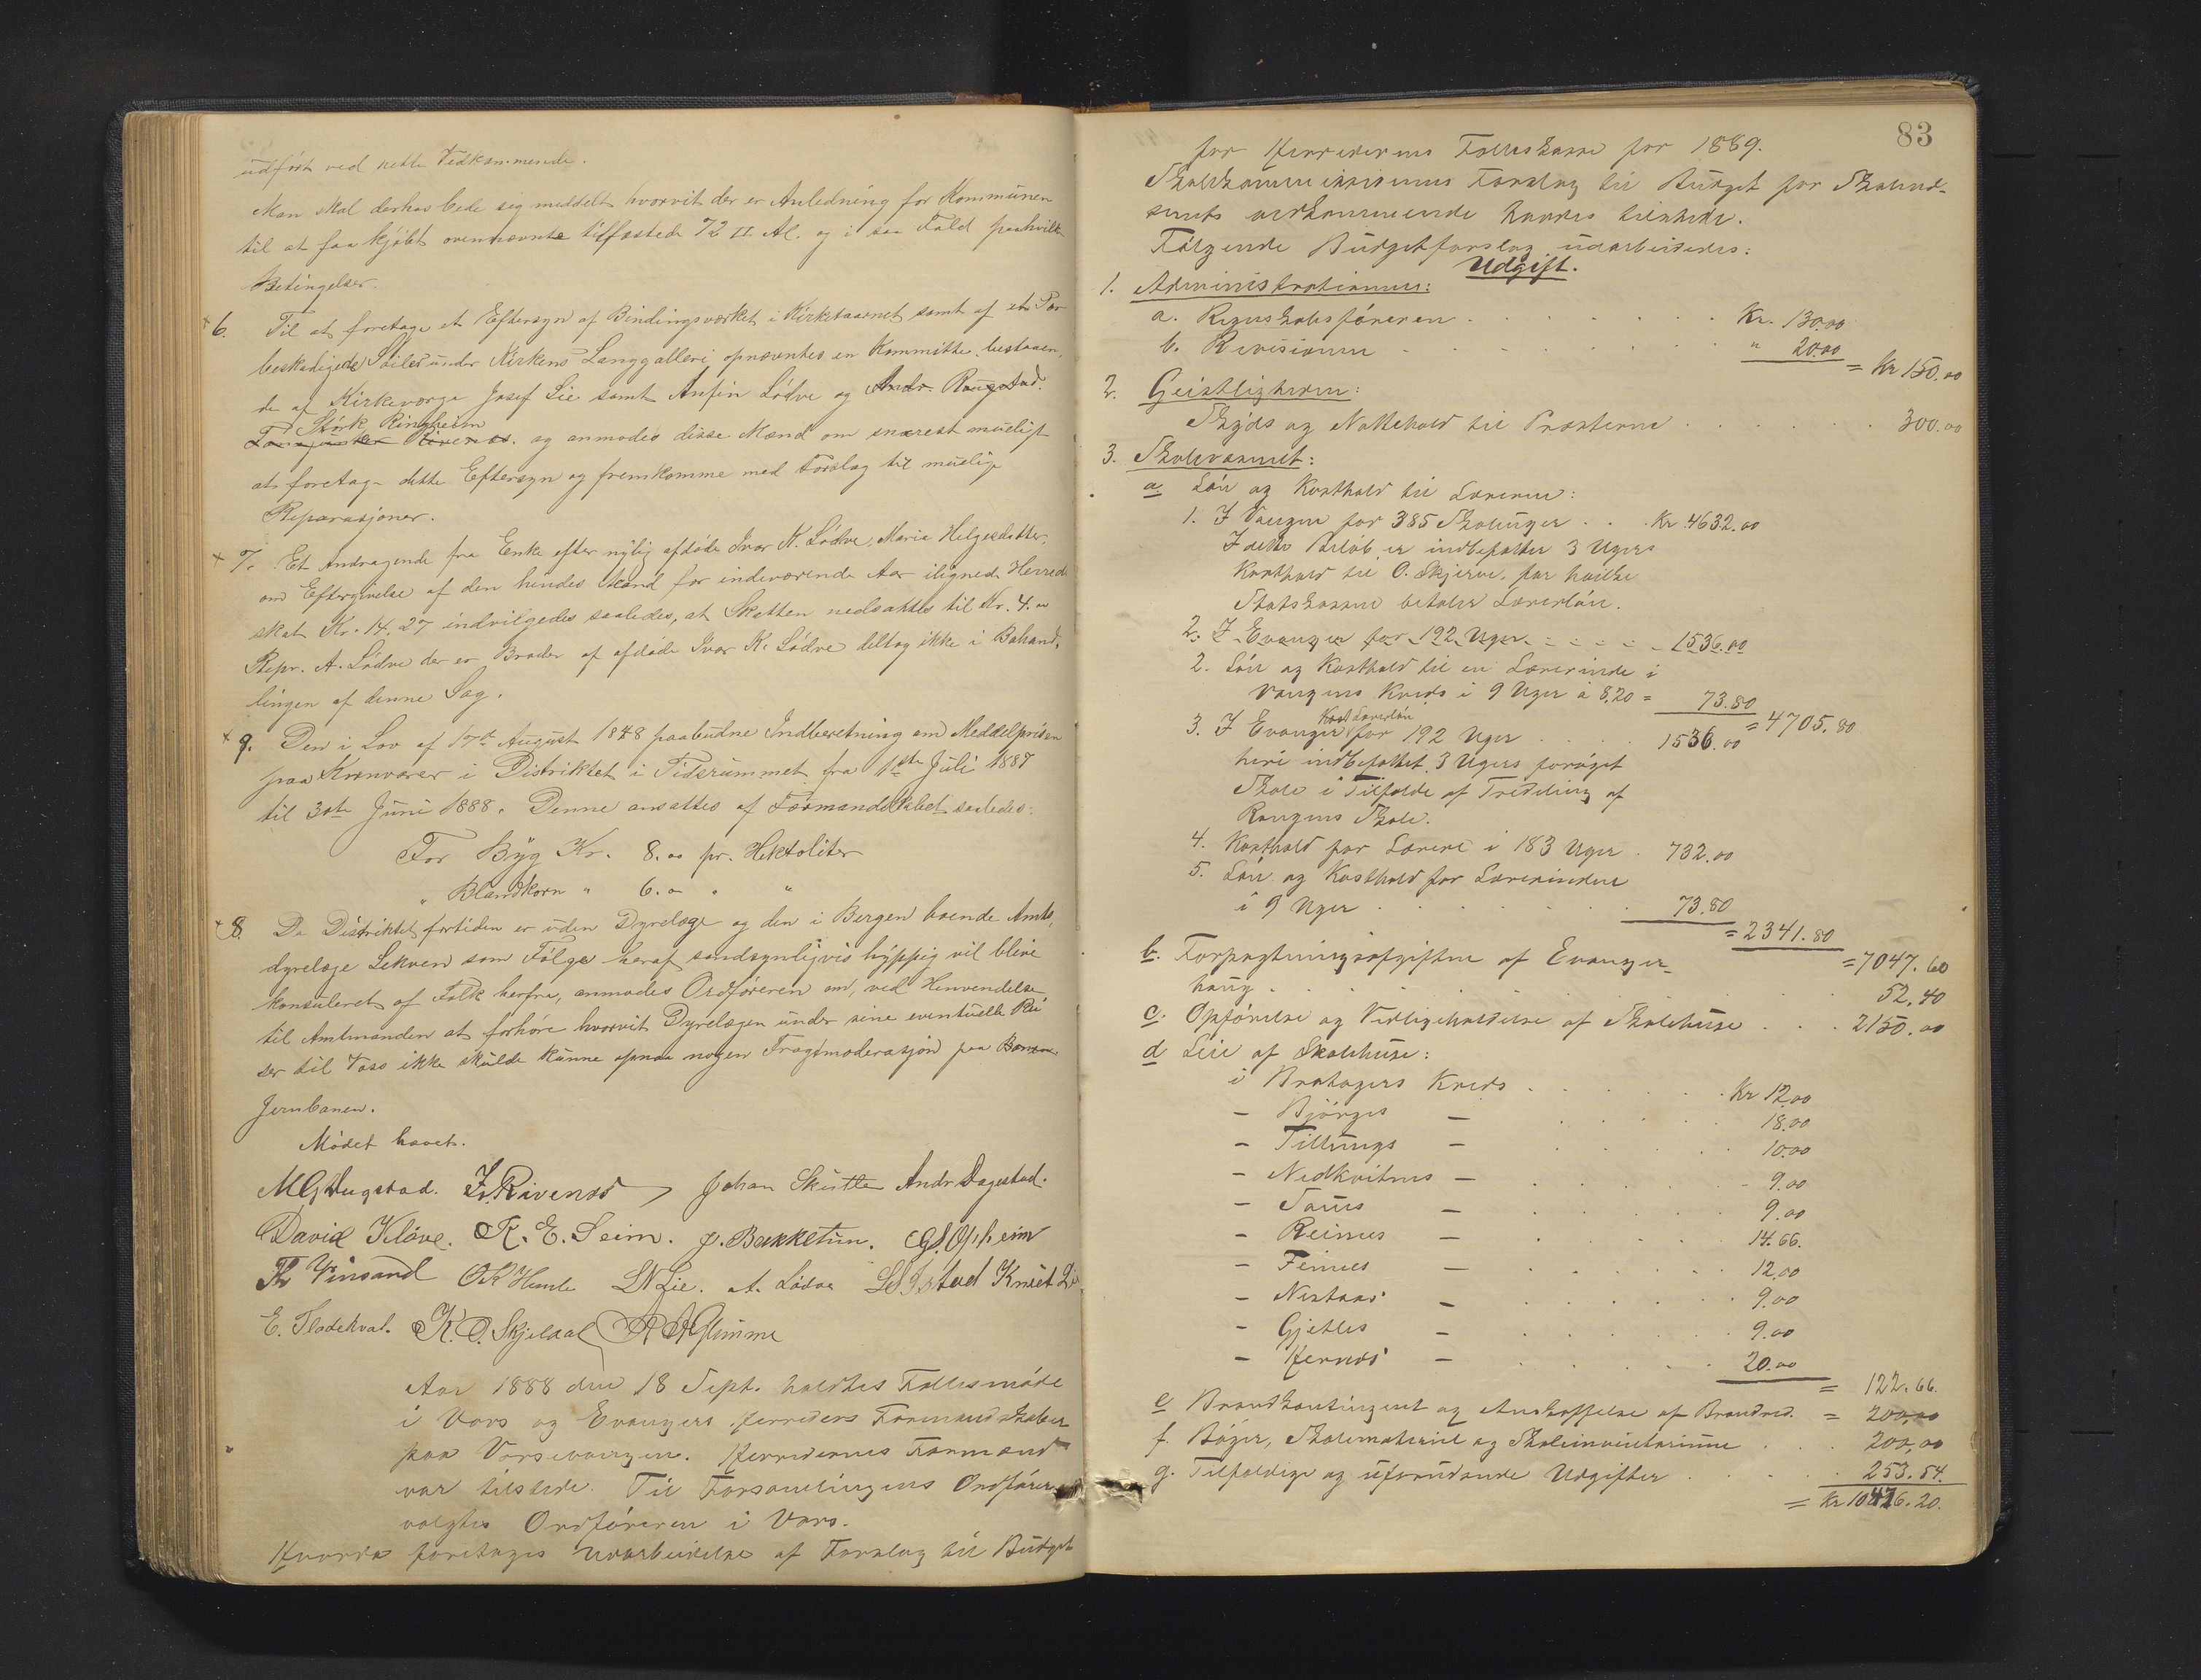 udført ved rette Vedkommende.
Man skal derhos bede sig meddelt hvorvit der er Anledning for Kommunen
til at faa kjøbt ovennævnte tilfæstede 72 □ Al. og i saa Fald paa hvilke
Betingelser.
6. Til at foretage et Eftersyn af Bindingsværket i Kirketaarnet samt af et Par
beskadigede Søiler under Kirkens Langgalleri opnævntes en Kommitte bestaaen-
de af Kirkeværge Josef Lie samt Anfin Lødve og Andr. Rongstad.
Størk Ringheim
og anmodes disse Mænd om snarest mueligt
at foretage dette Eftersyn og fremkomme med Forslag til muelige
Reparasjoner.
7. Et Andragende fra Enke efter nylig afdøde Ivar K. Lødve, Maria Helgesdatter,
om Eftergivelse af den hendes Mand for indeværende Aar ilignede Herreds
skat Kr. 14.27 indvilgedes saaledes, at Skatten nedsattes til Kr. 4.00
Repr. A. Lødve der er Broder af afdøde Ivar K. Lødve deltog ikke i Behand-
lingen af denne Sag.
9. Den i Lov af 17de August 1848 paabudne Indberetning om Meddelprisen
paa Kornvarer i Distriktet i Tidsrummet fra 1ste Juli 1887
til 30te Juni 1888. Denne ansattes af Formandskabet saaledes:
For Byg Kr. 8.00 pr. Hektoliter
" Blandkorn " 6.00 " "
8. Da Distriktet fortiden er uden Dyrelæge og den i Bergen boende Amts-
dyrelæge Sekven som Følge heraf sandsynligvis hyppig vil blive
konsuleret af Folk herfra, anmodes Ordføreren om, ved Henvendelse
til Amtmanden at forhøre hvorvit Dyrelægen under sine eventuelle Rei
ser til Voss ikke skulde kunne opnaa nogen Fragtmoderasjon paa
Jernbanen.
Mødet hævet.
MGDugstad. I. Rivenæs, Johan Skutle Andr Dagestad.
David Kløve. K. E. Seim. J. Bakketun. G. Opheim
Th Vinsand OK Humle LN Lie. A. Lødve Knut Li
E. Fladekval. K. O. Skjeldal A Glimme
Aar 1888 den 18 Sept. holdtes Fællesmøde
i Vors og Evangers Herreders Formandskaber
paa Vorsevangen. Herredernes Formænd
var tilstede. Til Forsamlingens Ordfører
valgtes Ordføreren i Vors.
Hvorda foretoges Udarbeidelse af Forslag til Budget
83
for Herredernes Fælleskasse for 1889.
Skolekommissionens Forslag til Budget for Skolevæ-
senets vedkommende havdes tilstede.
Følgende Budgetforslag udarbeidedes:
Udgift.
1. Administrationen:
a. Regnskabsføreren . . . . . . . Kr. 130.00
b. Revisionen . . . . . . . " 20.00
= Kr 150.00
2. Geistligheden:
Skyds og Nattehold til Præsterne . . . . . . 300.00
3. Skolevæsenet:
a Løn og Kosthold til Lærerne:
1. I Vangen for 385 Skoleuger . . . Kr 4632.00
I dette Beløb er indbefattet 3 Ugers
Kosthold til O. Skjerve, for hvilke
Statskassen betaler Lærerløn.
2. I Evanger for 192 Uger - - - - - 1536.00
2. Løn og Kosthold til en Lærerinde i
Vangens Kreds i 9 Uger à 8.20 = 73.80
= 4705.80
Lærerløn
3. I Evanger for 192 Uger . . . . 1536.00
heri indbefattet 3 Ugers forøget
Skole i Tilfælde af Tredeling af
Rongens Skole.
4. Kosthold for Lærere i 183 Uger . 732.00
5. Løn og Kosthold for Lærerinden
i 9 Uger . . . . . . . 73.80
= 2341.80
= 7047.60
b. Forpagtningsafgiften af Evanger-
haug . . . . . . . . . . 52.40
c. Opførelse og Vedligeholdelse af Skolehuse . . . 2150.00
d Leie af Skolehuse:
i Bratagers Kreds . . . . . . Kr 12.00
- Bjørges — . . . . . 18.00
- Tillungs — . . . . . 10.00
- Nedkvitnes — . . . . . 9.00
- Saues — . . . . . 9.00
- Reimes — . . . . . 14.66.
- Finnes — . . . . . 12.00
- Nestaas — . . . . . 9.00
- Gjetles — . . . . . 9.00
- Hernes — . . . . . 20.00
= 122.66.
e Brandkontingent og Anskaffelse af Brandred. = 200.00
f. Bøger, Skolemateriel og Skoleinventarium . . . 200.00
g. Tilfældige og uforudsende Udgifter . . . . . 253.54.
= Kr 10476.20.